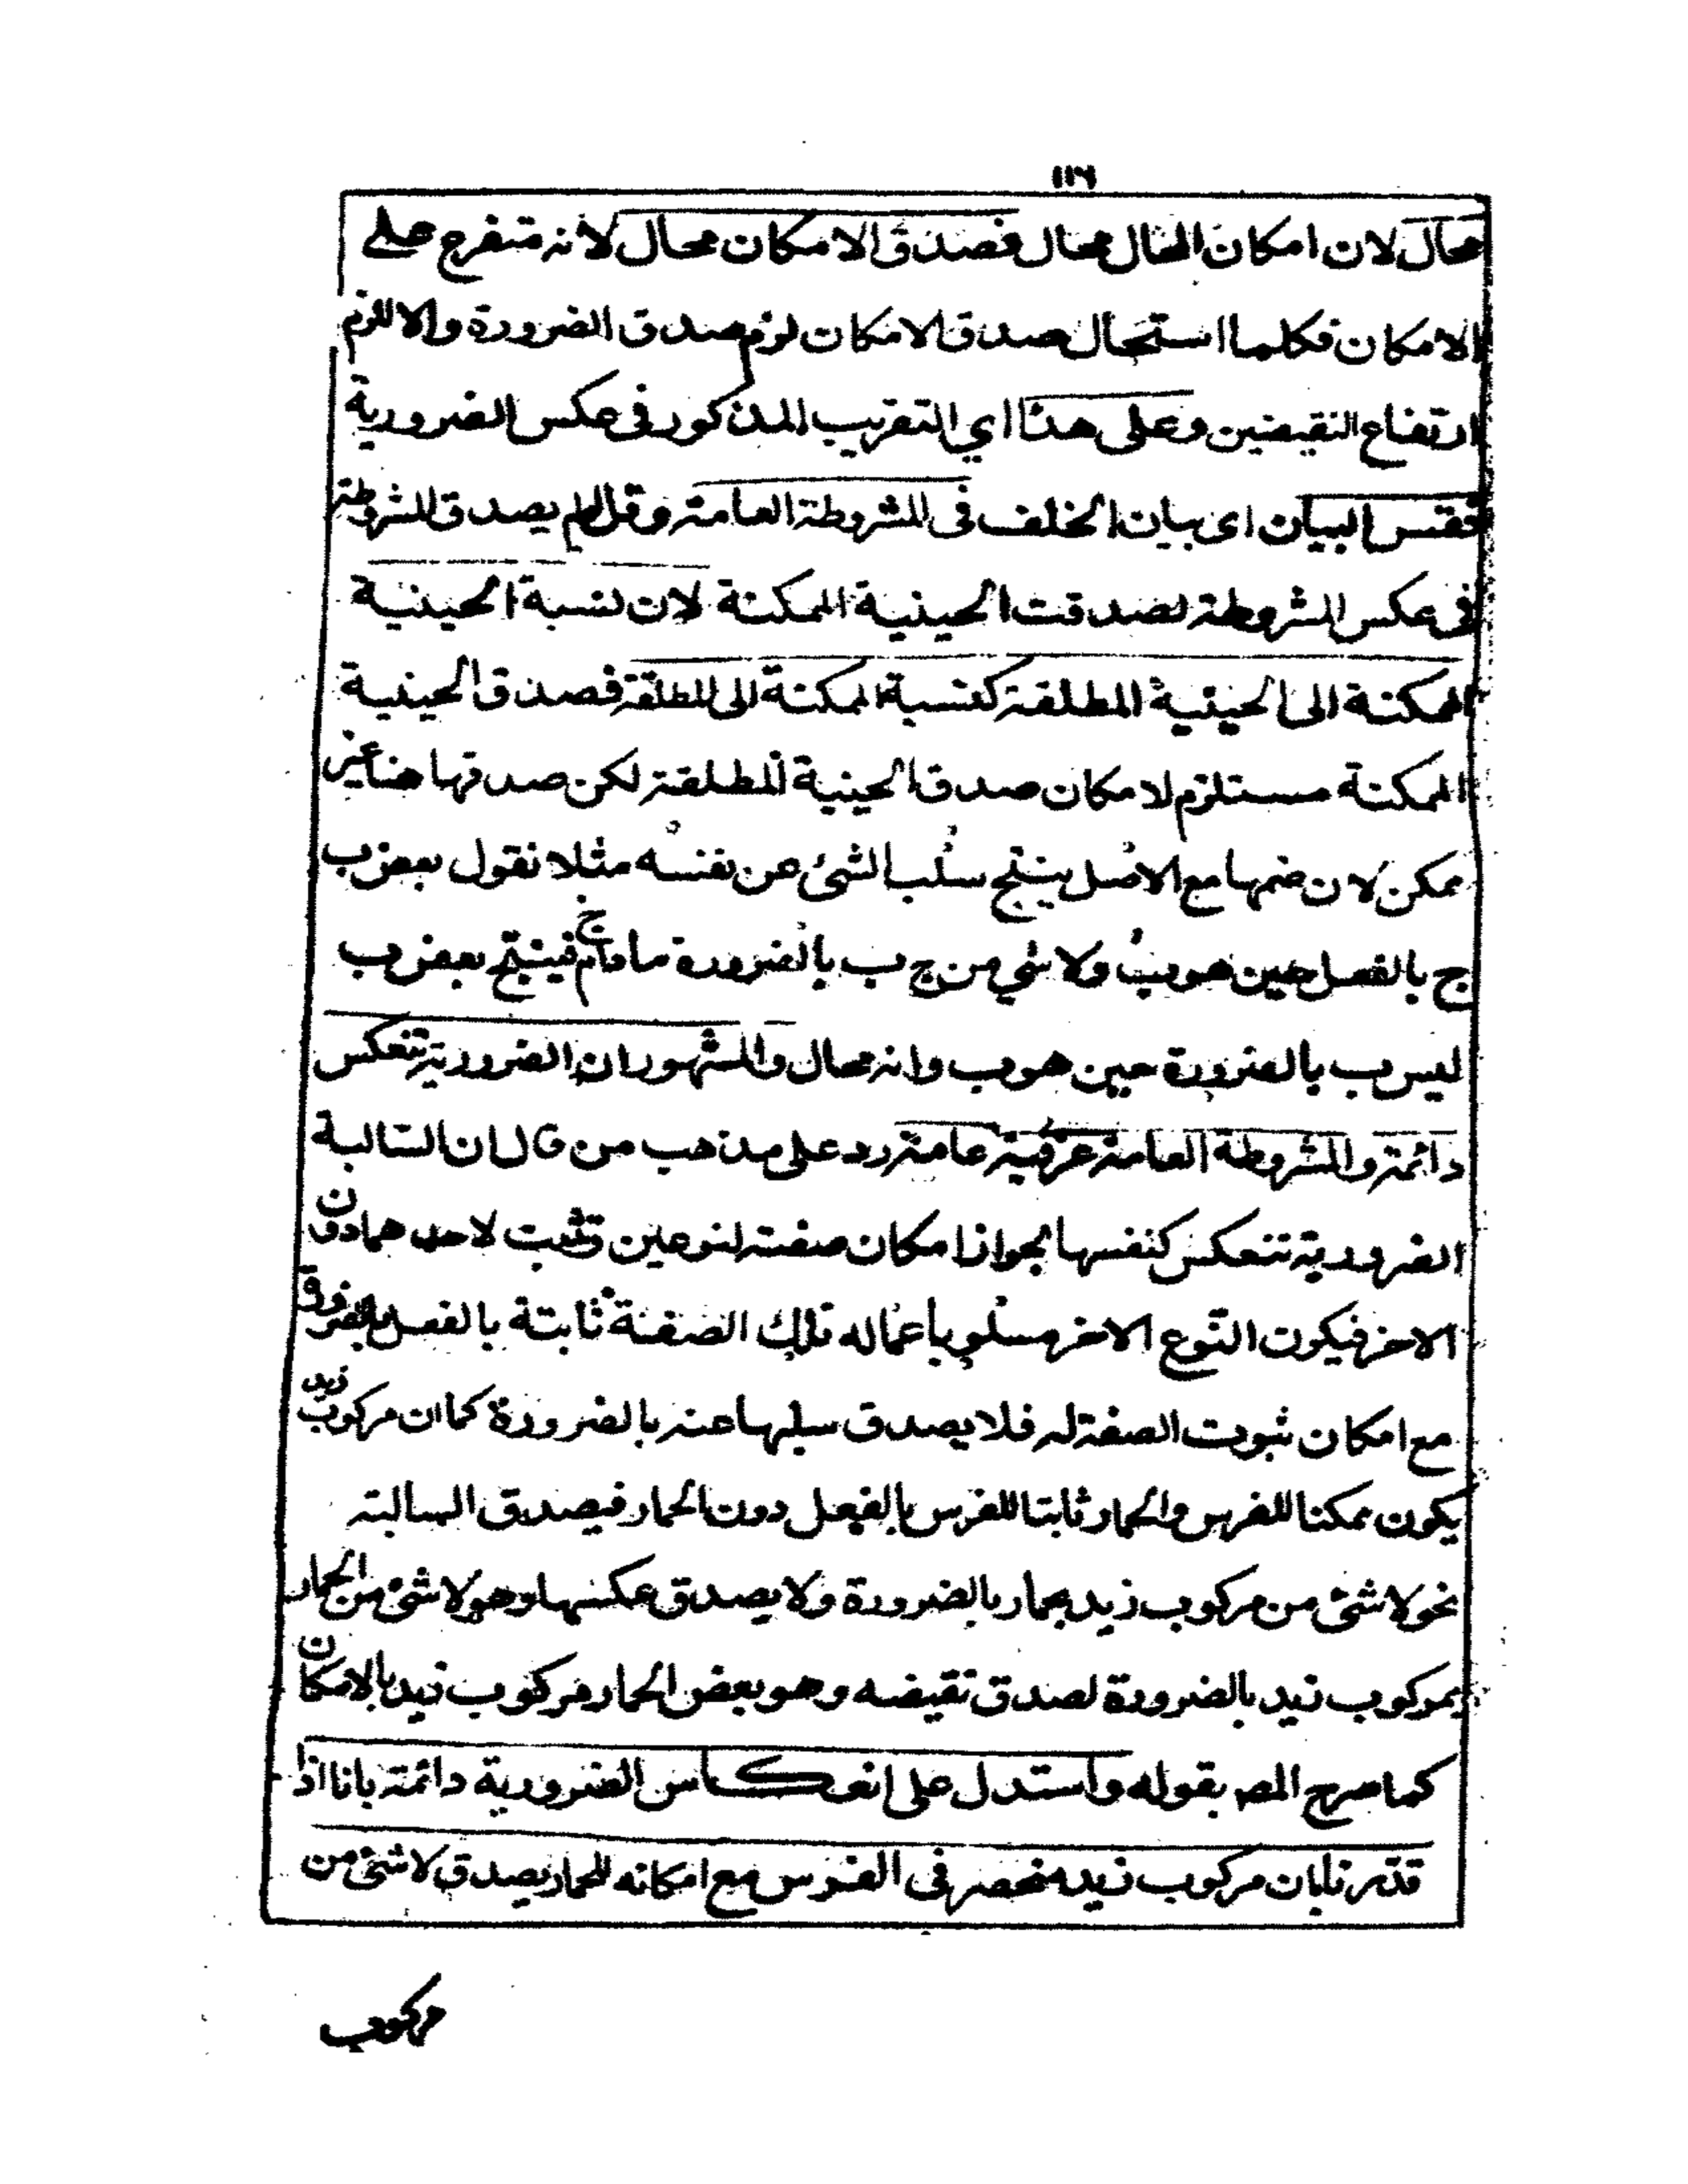 ١١٦
محال لان امكان المحال محال فصدق الامكان محال لانه متفرع على
الامكان فكلما استحال صدق الامكان لزم صدق الضرورة والا للزم
ارتفاع النقيضين وعلى هذا اي التقريب المذكور في عكس الضرورية
فقس البيان اى بيان الخلف فى المشروطة العامة وقل لو لم يصدق المشروطة
فى عكس المشروطة لصدقت الحينية الممكنة لان نسبة الحينية
الممكنة الى الحينية المطلقة كنسبة الممكنة الى المطلقة فصدق الحينية
الممكنة مستلزم لامكان صدق الحينية المطلقة لكن صدقها هنا غير
ممكن لان ضمها مع الاصل ينتج سلب الشئ عن نفسه مثلا نقول بعض ب
ج بالفعل حين هو ب ولا شي من ج ب بالضرورة ما دام ج فينتج بعض ب
ليس ب بالضرورة حين هو ب وانه محال والمشهور ان الضرورية تنعكس
دائمة والمشروطة العامة عرفية عامة رد على مذهب من قال ان السالبة
الضرورية تنعكس كنفسها لجواز امكان صفة لنوعين وتثبت لاحدهما دون
الاخر فيكون النوع الاخر مسلوبا عما له تلك الصفة ثابتة بالفعل بالضرورة
مع امكان ثبوت الصفة له فلا يصدق سلبها عنه بالضرورة كما ان مركوب زيد
يكون ممكنا للفرس والحمار ثابتا للفرس بالفعل دون الحمار فيصدق السالبة
نحو لا شئ من مركوب زيد بحمار بالضرورة ولا يصدق عكسها وهو لا شئ من الحمار
بمركوب زيد بالضرورة لصدق نقيضه وهو بعض الحمار مركوب زيد بالامكان
كما صرح المص بقوله واستدل على انعكاس الضرورية دائمة بانا اذا
قدرنا بان مركوب زيد منحصر فى الفرس مع امكانه للحمار يصدق لا شئ من
مركوب